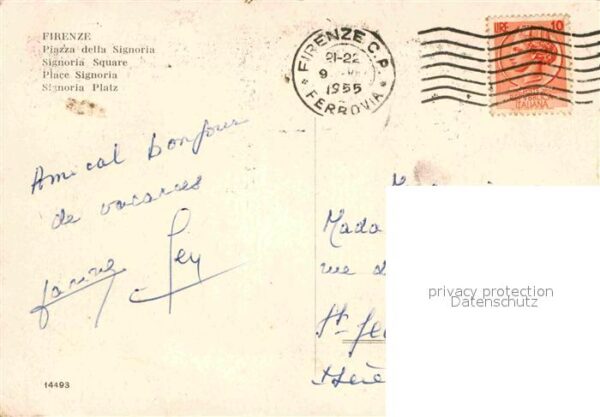 FIRENZE
Piazza della Signoria
Signoria Square
Place Signoria
Signoria Platz
FIRENZE C.P.
21-22
9
1955
FERROVIA
LIRE 10
ITALIANA
Amical bonjour
de vacances
Mada
rue d
St
privacy protection
Datenschutz
14493